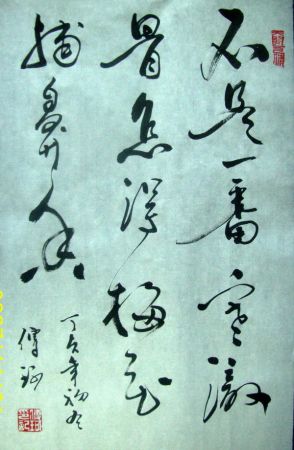 不是一番寒徹
骨怎得梅花
撲鼻香
丁亥年初冬
傅